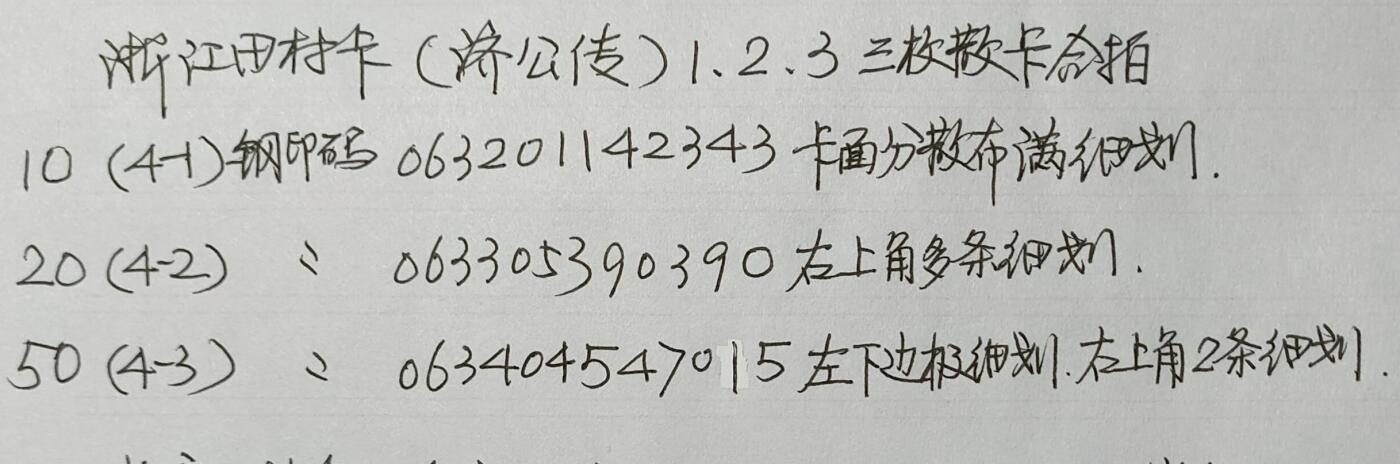 浙江田村卡(济公传)1.2.3三枚散卡合拍
10(4-1)钢印码 063201142343 卡面分散布满细划.
20(4-2) 〃 063305390390 右上角多条细划.
50(4-3) 〃 063404547015 左下边极细划.右上角2条细划.